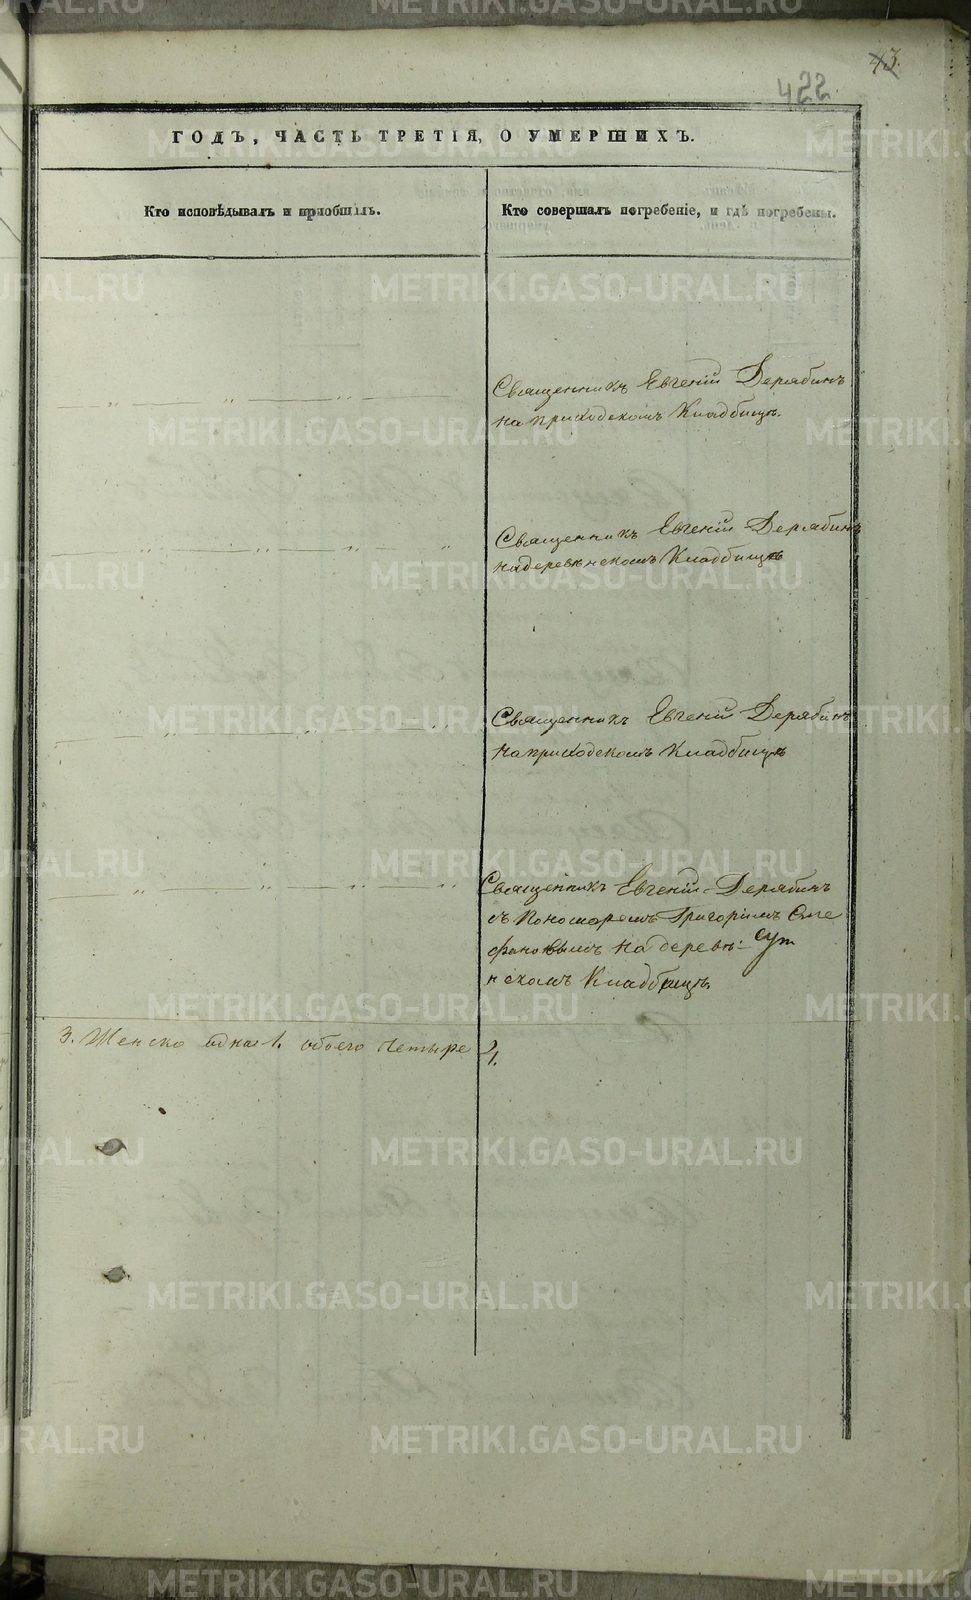 43.
422
ГОДЪ, ЧАСТЬ ТРЕТІЯ, О УМЕРШИХЪ.
Кто исповѣдывалъ и пріобщалъ.
Кто совершалъ погребеніе, и гдѣ погребены.
Священникъ Евгеній Дерябинъ
на приходскомъ Кладбищѣ.
Священникъ Евгеній Дерябинъ
на деревенскомъ Кладбищѣ
Священникъ Евгеній Дерябинъ
на приходскомъ Кладбищѣ
Священникъ Евгеній Дерябинъ
съ Пономаремъ Григоріемъ Сте
фановымъ на деревѣ:
нскомъ Кладбищѣ.
3. Женска одна 1. обоего четыре 4.
METRIKI.GASO-URAL.RU